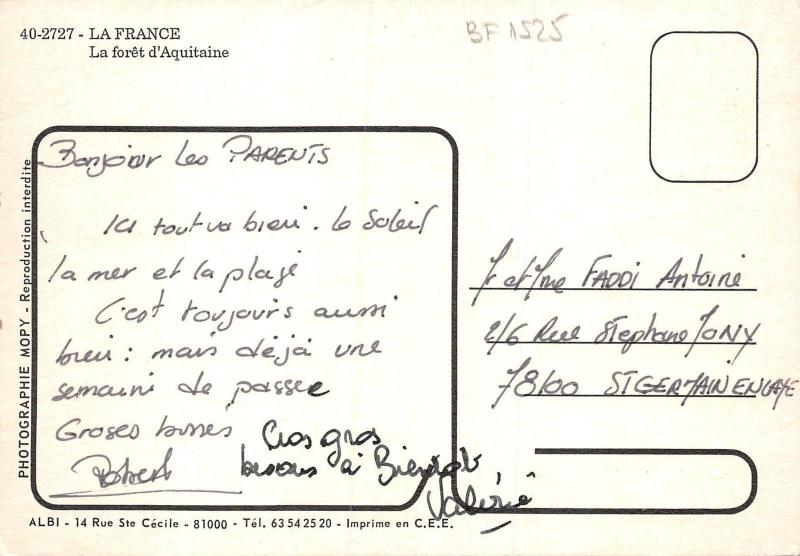 40-2727 - LA FRANCE
La forêt d'Aquitaine
BF 1525
PHOTOGRAPHIE MOPY - Reproduction interdite
Bonjour Les PARENTS
Ici tout va bien. Le Soleil
la mer et la plage
C'est toujours aussi
bien : mais déjà une
semaine de passée
Groses bises
Robert
Gros gros
bisous à Bientot
Valérie
Mr et Mme FADDI Antoine
2/6 Rue Stephane MONY
78100 ST GERMAIN EN LAYE
ALBI - 14 Rue Ste Cécile - 81000 - Tél. 63 54 25 20 - Imprime en C.E.E.